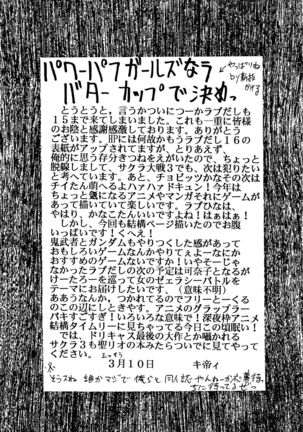 パワーパフガールズなラ
バターカップで決めっ
やっぱりね
by 新拓
とうとうと、言うかついにつーかラブだしも
15まで来てしまいました。これも一重に皆様
のお陰と感謝感激しております。ありがとう
ございます。HPには何故かもうラブだし16の
表紙がアップされてますが、とりあえず、
俺的に思う存分きつねをえがいたので、ちょっと
脱線しまして、サクラ大戦3でも、次は取りたい
と考えています。あと、チョビッツかなその次は
チイたん萌へるよハァハァドキュン!今年は
ちょっと気になるアニメやマンガそれにゲームが
あって描いていて楽しいです。ラブひなは、
やはり、かなこたんいいですよね!はぁはぁ!
しかし、今回も結構ページ描いたのでお腹
いっぱいです!くへえ!
鬼武者とガンダムもやりつくした感があって
おもしろいゲームなんかやりてぇよーなにか
おすすめのゲームないですか!いやそーじゃ
なかったラブだしの次の予定は可奈子となるが
けーたろーを巡って女のゼェラシーバトルを
テーマにお届けしたいです。(意味不明)
ああうなんか、つかれてるのでフリーとーくる
のこの辺にしときやす。アニメのグラップラー
バキすごすぎ!いろいろな意味で!深夜枠アニメ
結構タイムリーに見ちゃってる今日この頃眠い!
では、ドリキャス最後の大作とか囁かれる
サクラ3も聖リオの本みたらついでに見てやって
ください。
3月10日
キ帝ィ